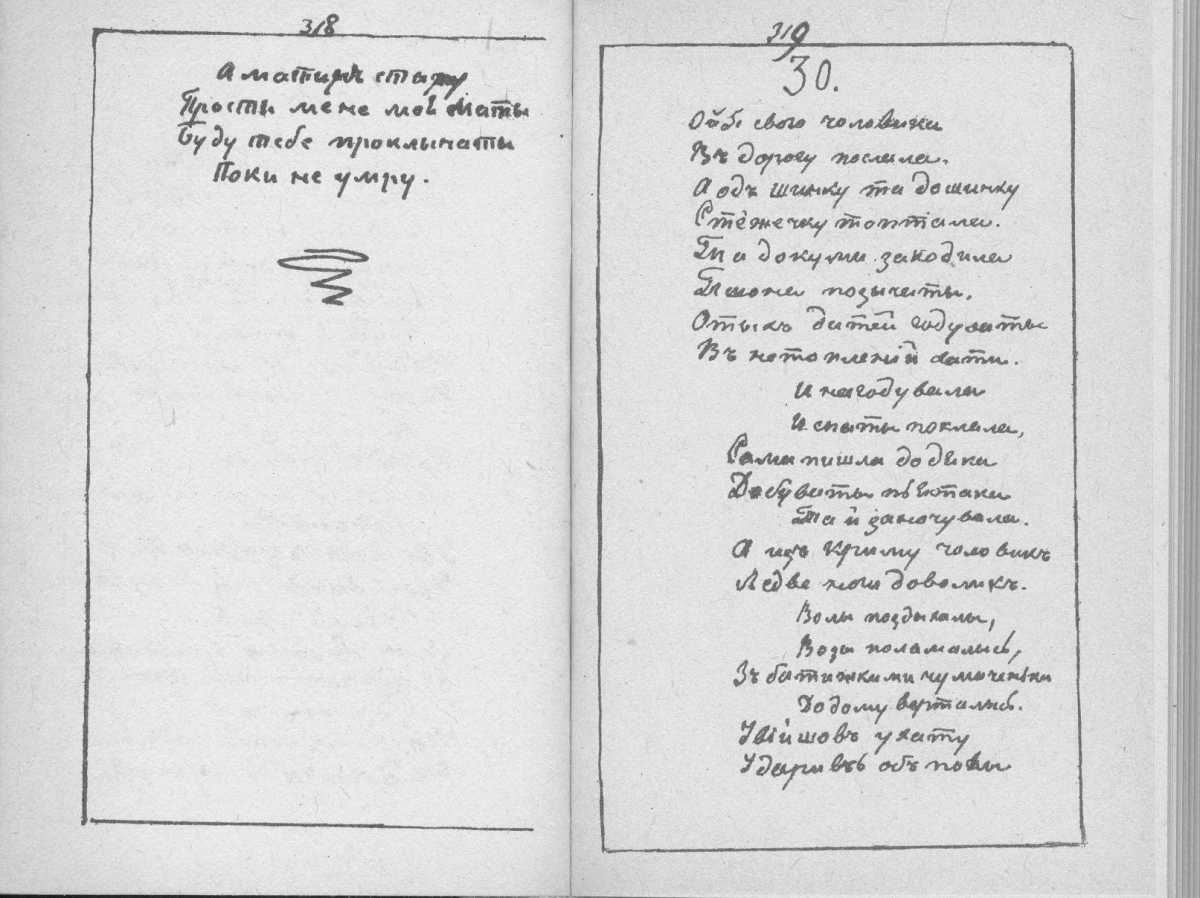 318
А матиръ стару
Прости мене мой маты
Буду тебе проклынаты
Поки не умру.
319
30.
Ой я свого чоловика
Въ дорогу послала.
А одъ шинку та до шинку
Стежечку топтала.
Та до кумы заходила
Пшона позычаты.
Отыхъ дитей годуваты
Въ нетопленій хати.
И нагодувала
И спаты поклала,
Сама пишла до дяка
Добуваты пьятака
Та й заночувала.
А изъ Криму чоловикъ
Ледве ноги доволикъ.
Волы поздыхалы,
Возы поламались,
Зъ батижками чумаченьки
Додому вертались.
Увійшовъ у хату
Ударивъ объ полы